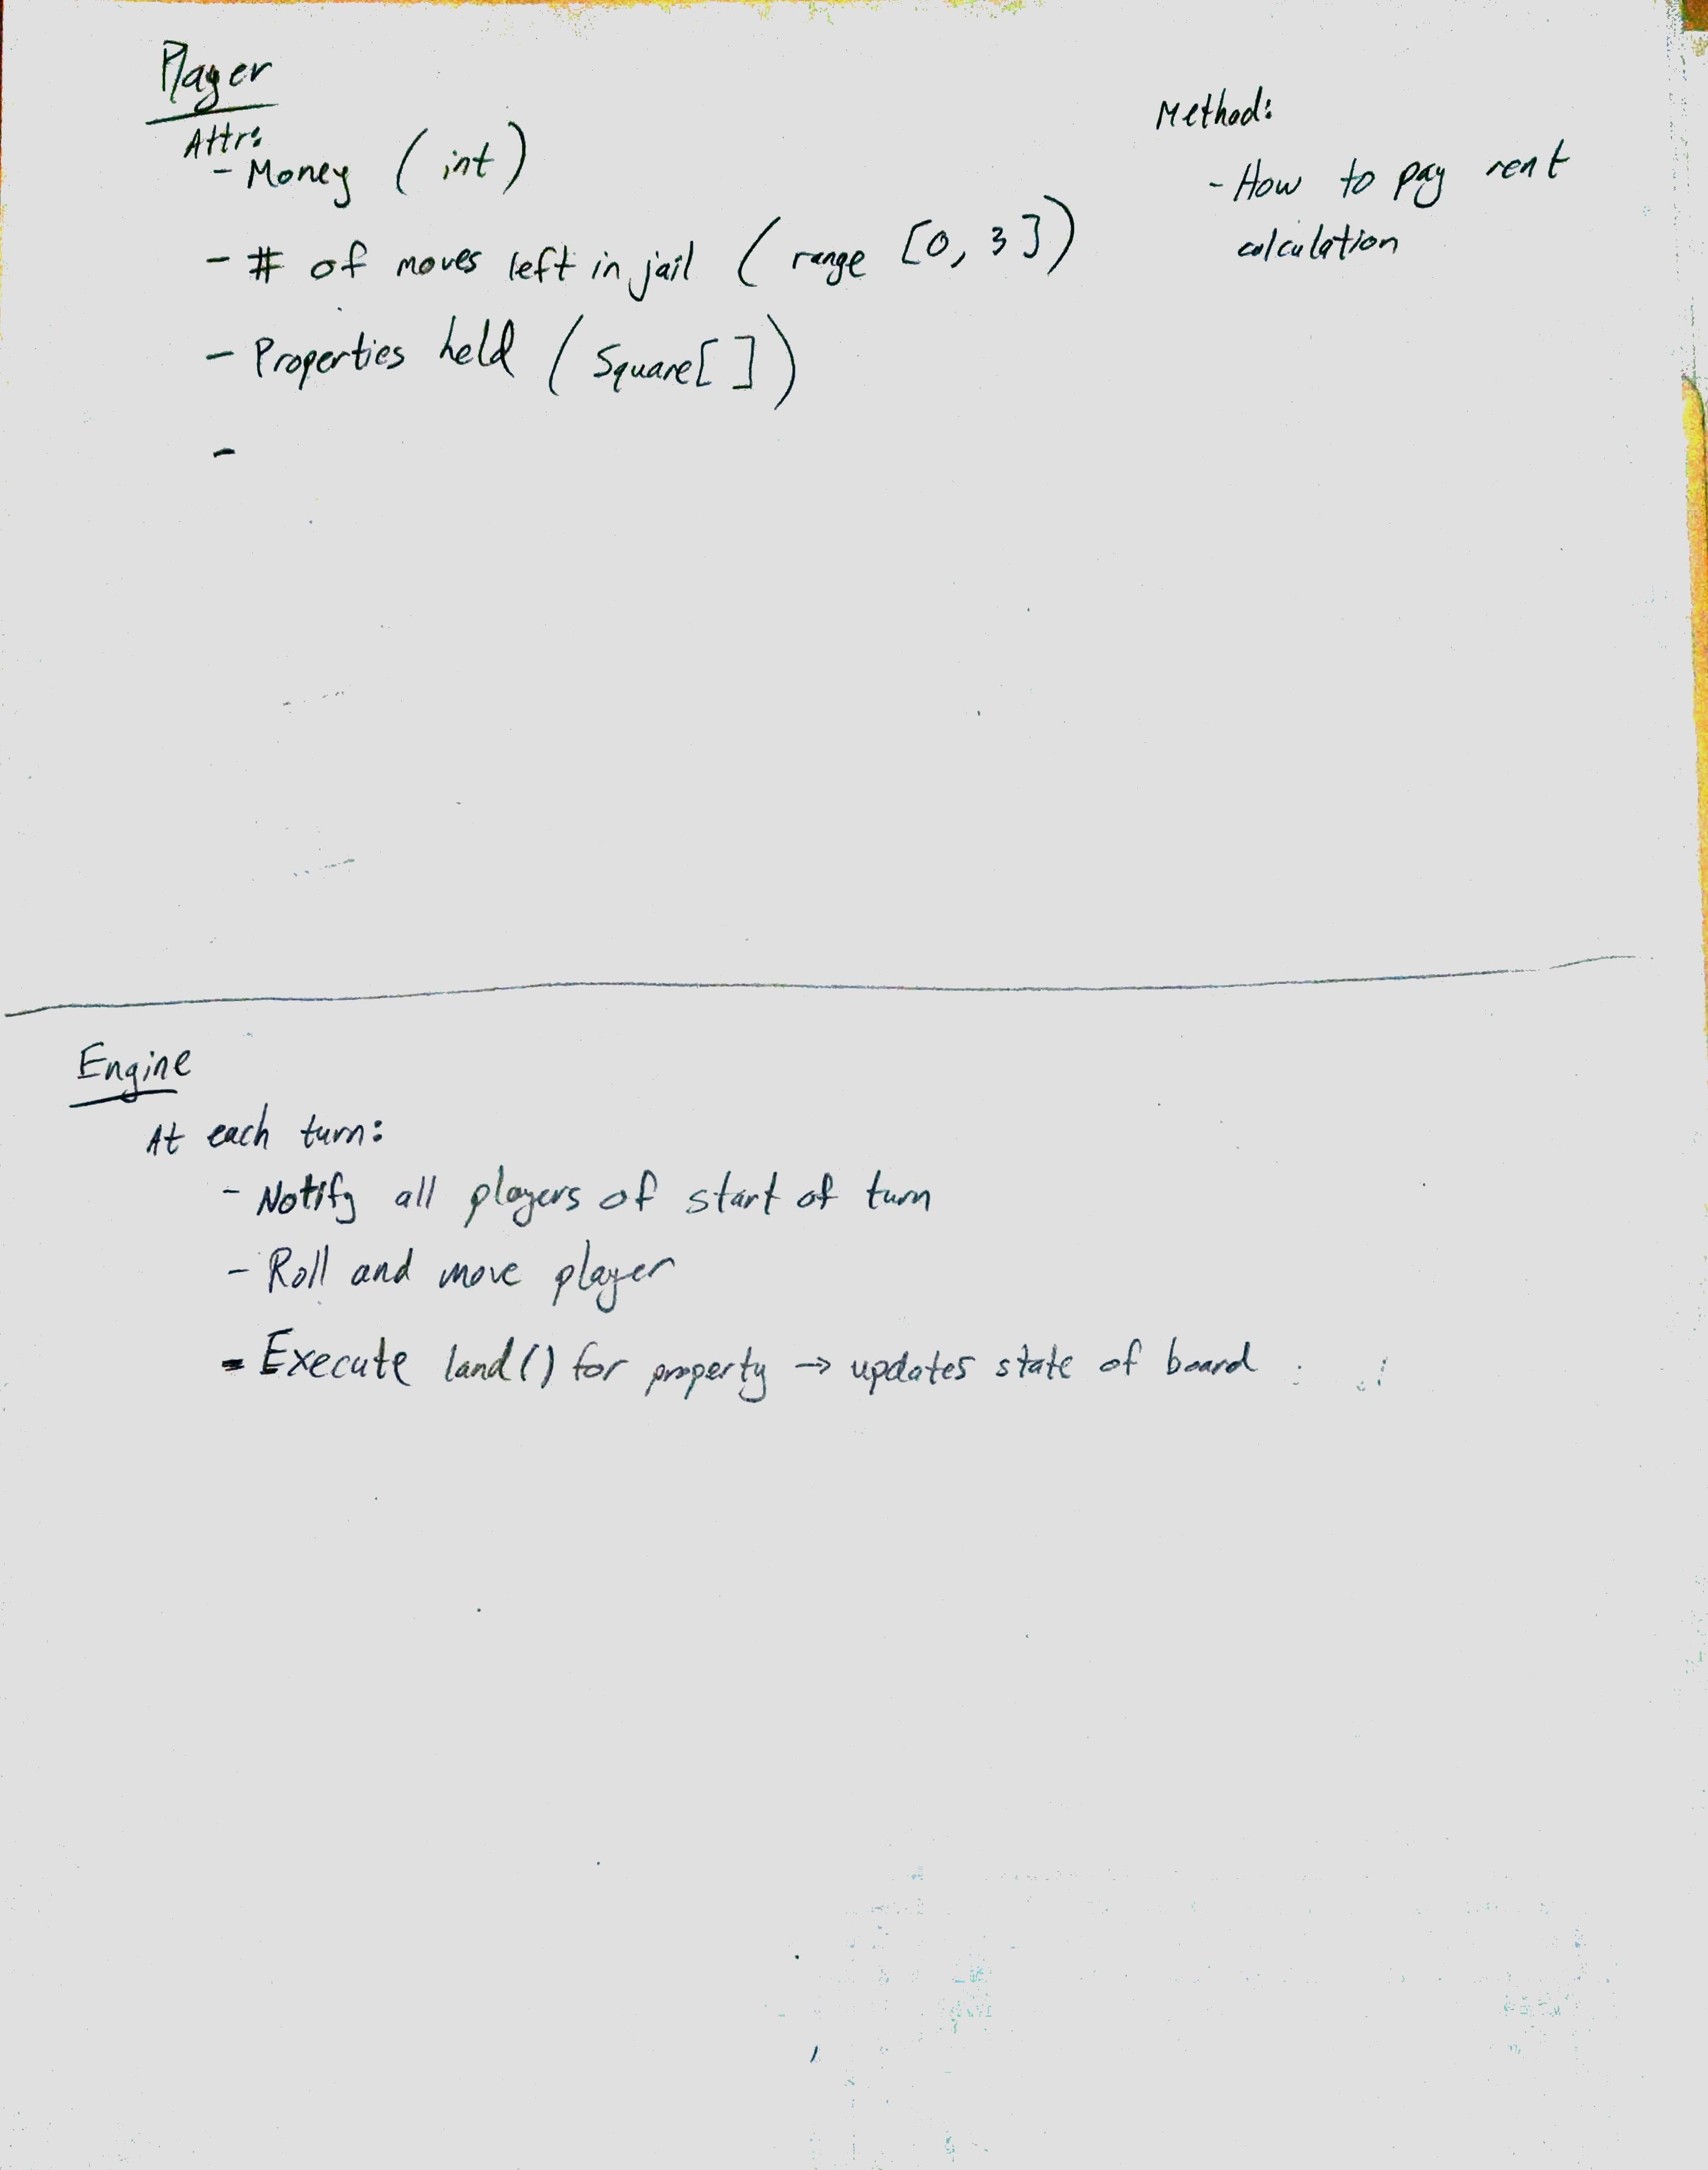 Player
Attr:
- Money (int)
- # of moves left in jail (range [0, 3])
- Properties held (Square[ ])
-
Method:
- How to pay rent
calculation
Engine
At each turn:
- Notify all players of start of turn
- Roll and move player
- Execute land() for property → updates state of board